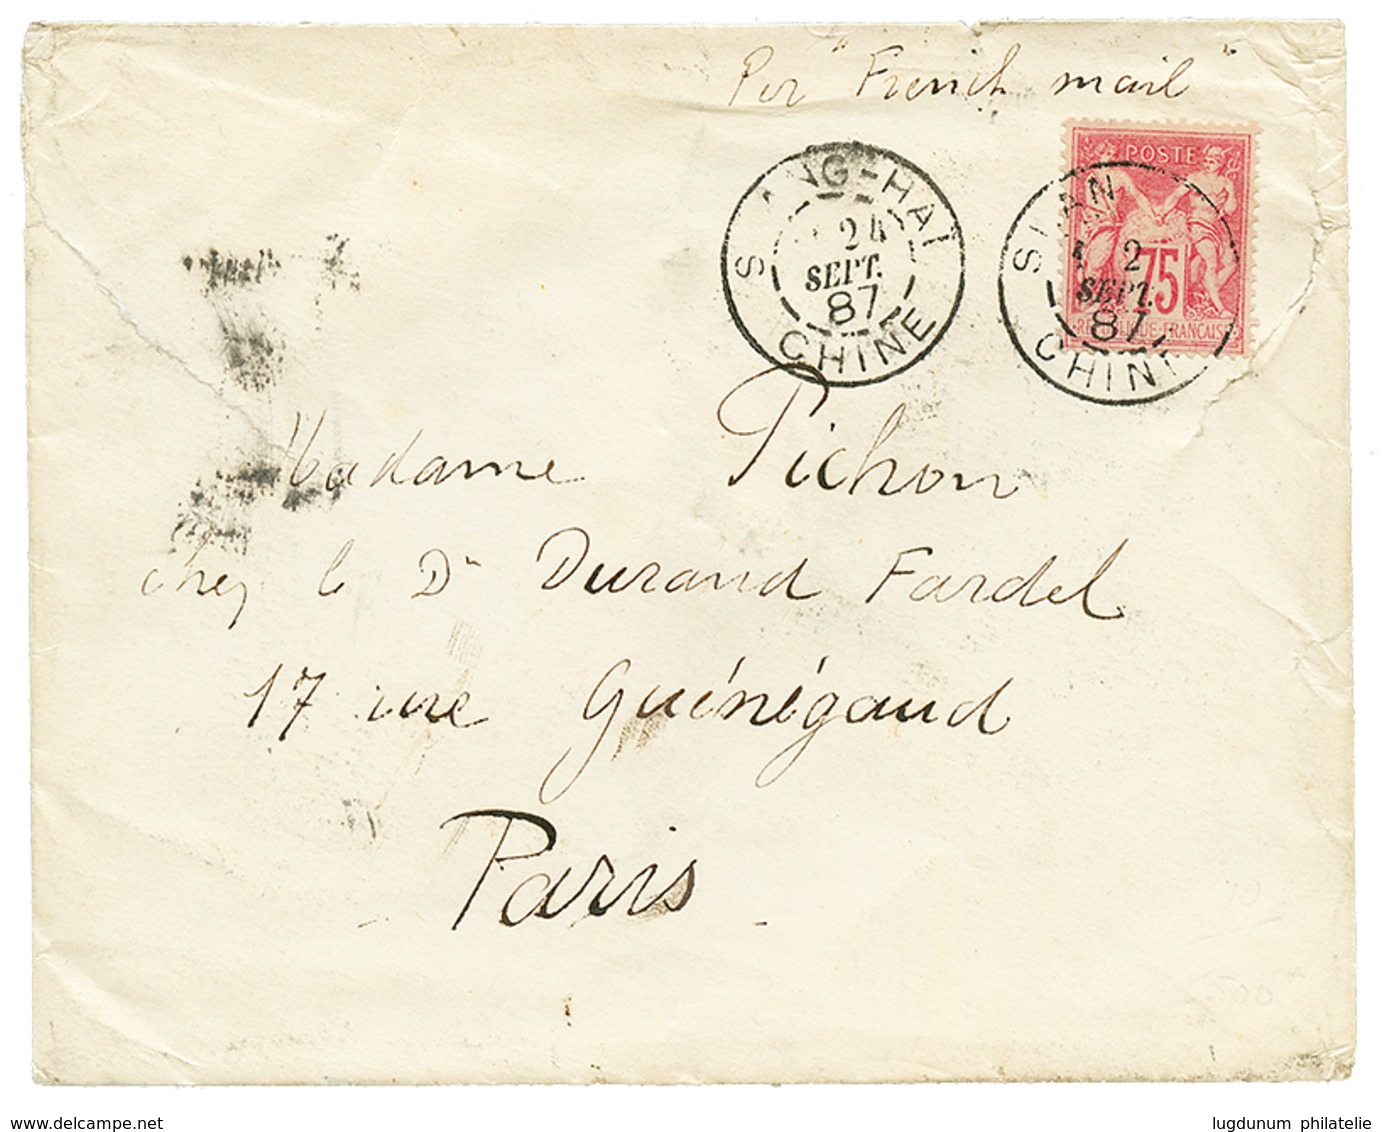 Per "French mail"
POSTE
S ANG-HAÏ
24
SEPT.
87
CHINE
2
SEPT.
87
CHINE
75
REPUBLIQUE FRANCAISE
Madame Pichon
chez le Dr Durand Fardel
17 rue Guénégaud
Paris
www.delcampe.net
lugdunum philatelie